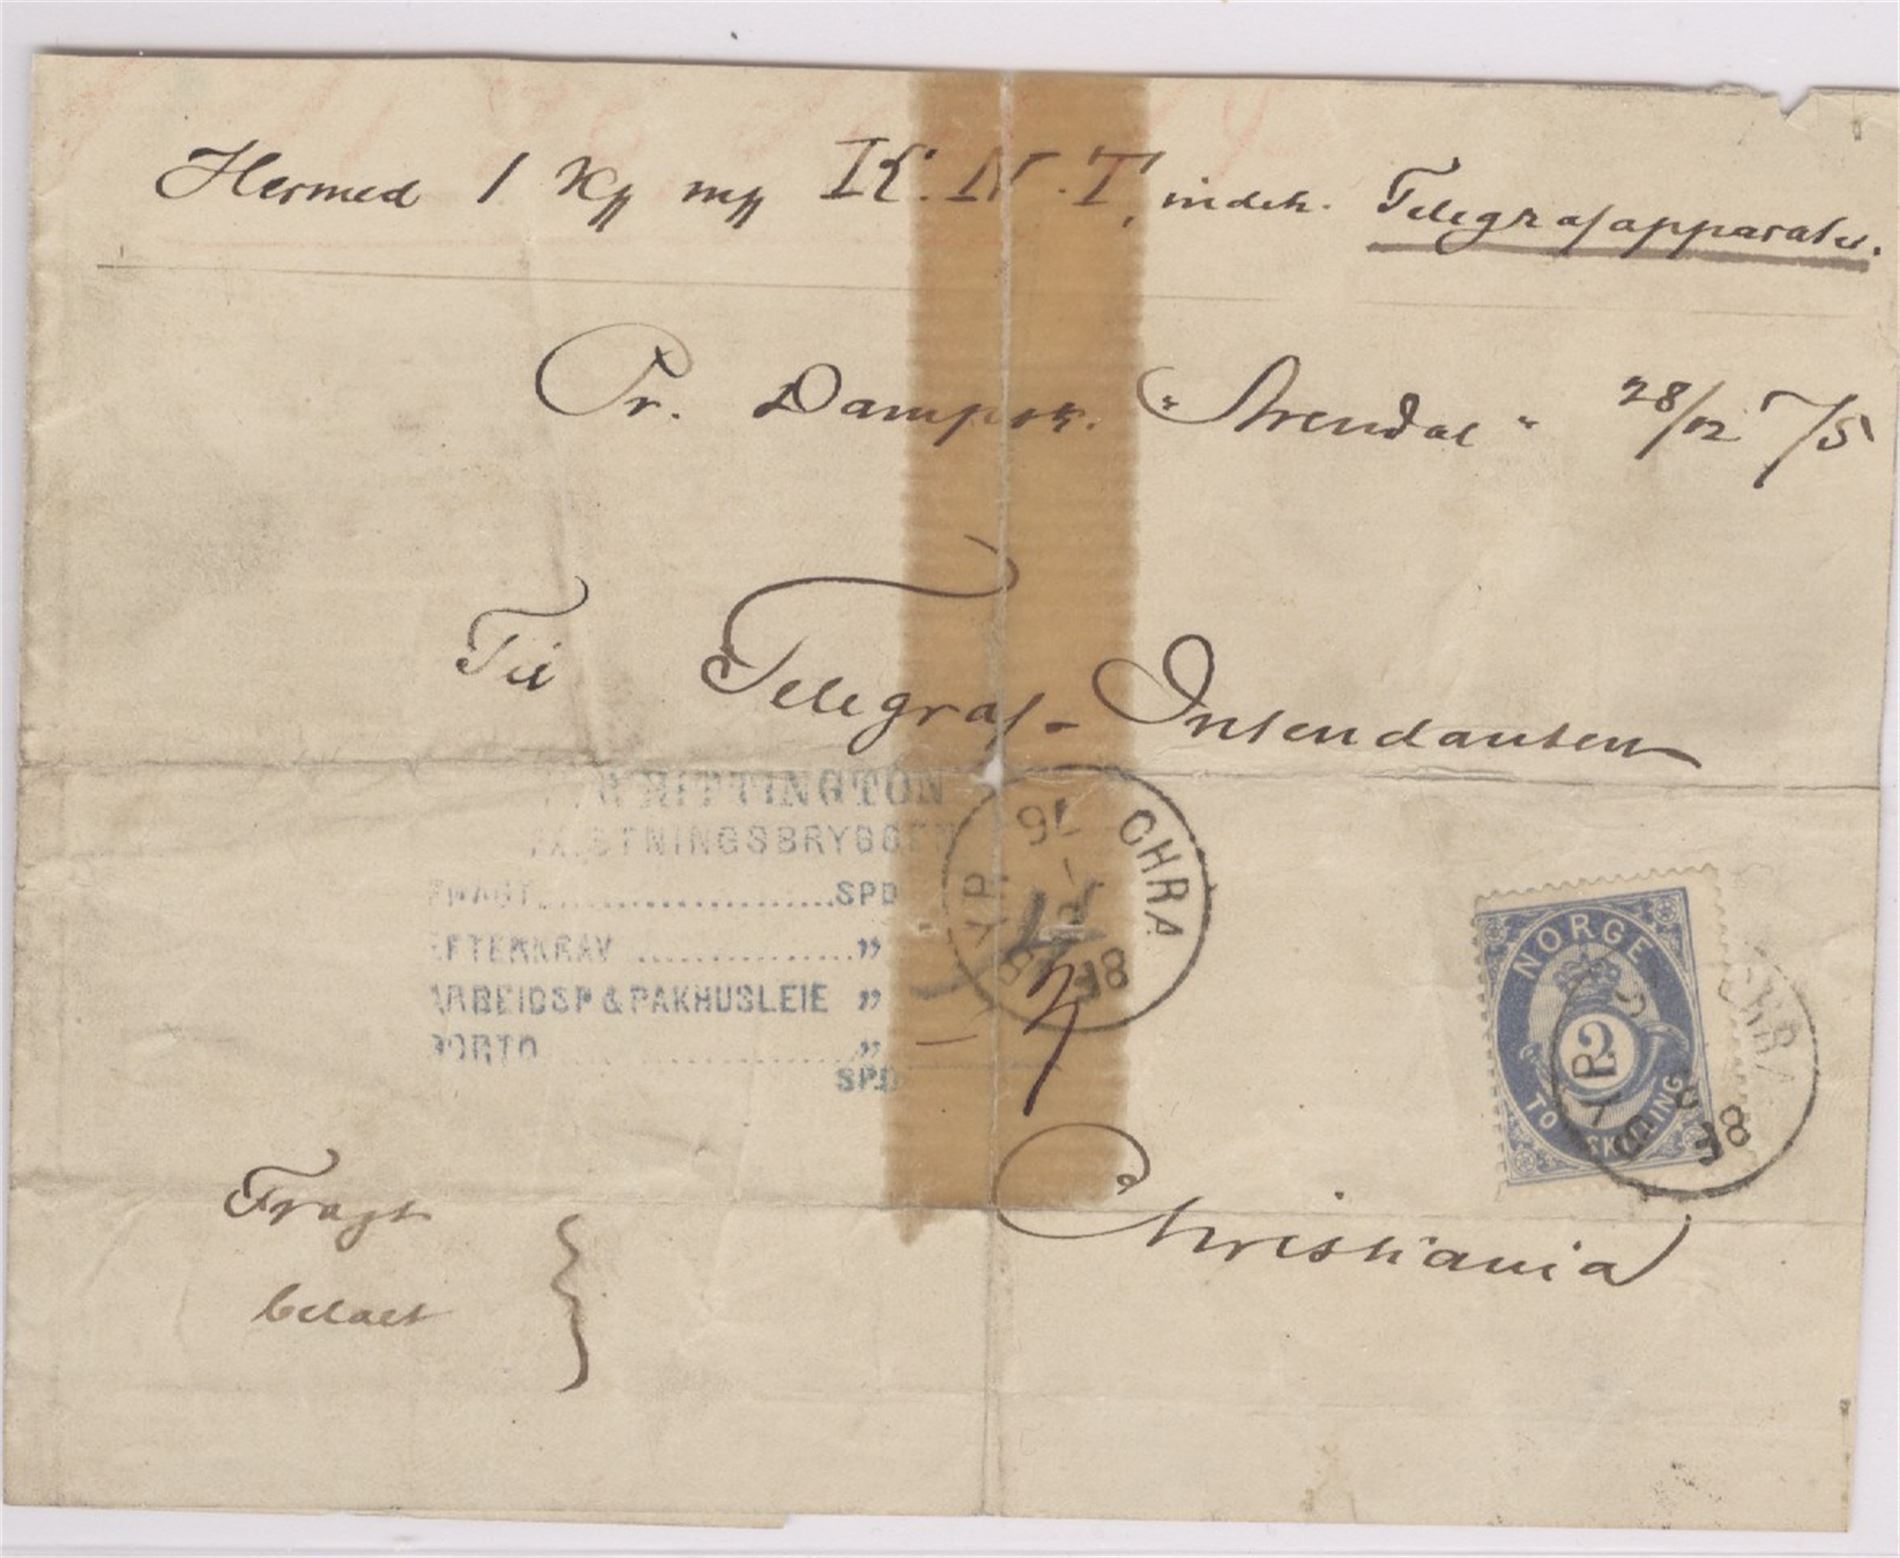 Hermed 1 Kß mß K. N. T, indeh. Telegrafapparater.
Pr. Dampsk. "Arendal" 28/12 75
Til Telegraf-Intendanten
HITTINGTON
FÆSTNINGSBRYGGEN
FRAGT....................SPD
EFTERKRAV ................"
ARBEIDSP & PAKHUSLEIE "
PORTO ................"
SPD
CHRA
BYP.
76
8E
NORGE
2
TO SKILLING
CHRA
BYP
8E
Christiania
Fragt
betalt